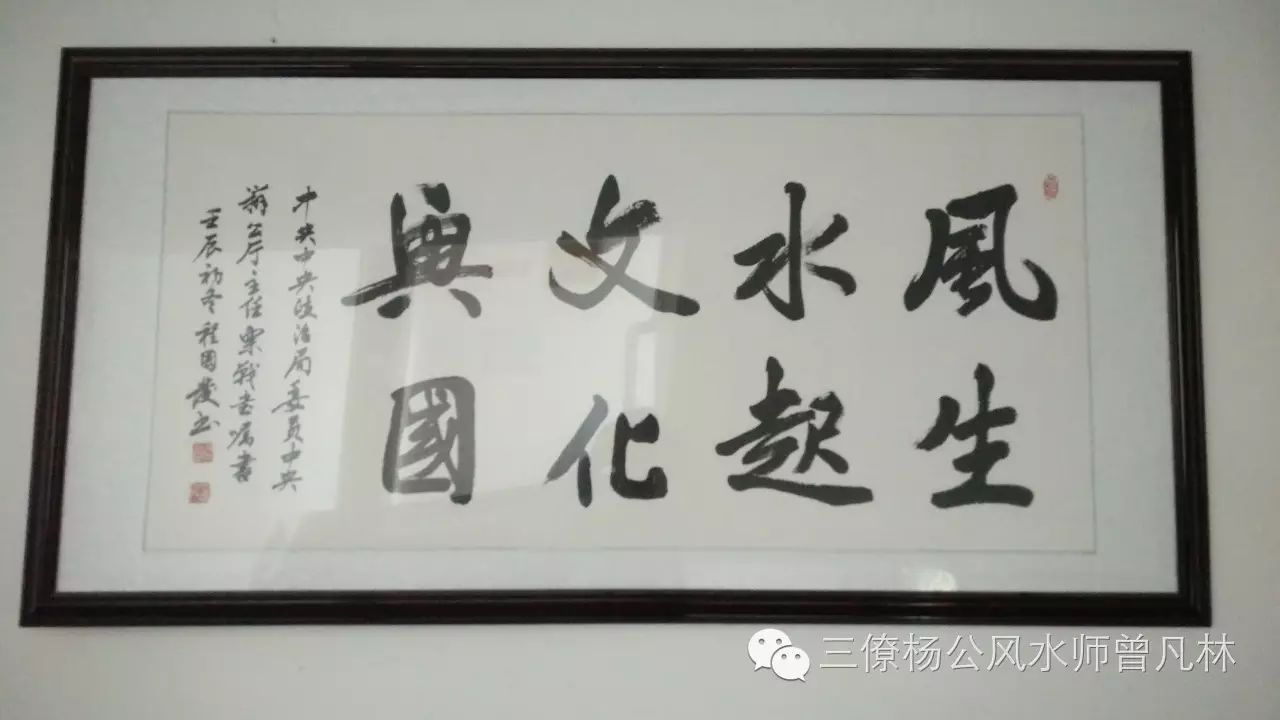 風生
水起
文化
興國
中央中央政治局委员中央
辦公厅主任栗战书嘱書
壬辰初冬程国
三僚杨公风水师曾凡林